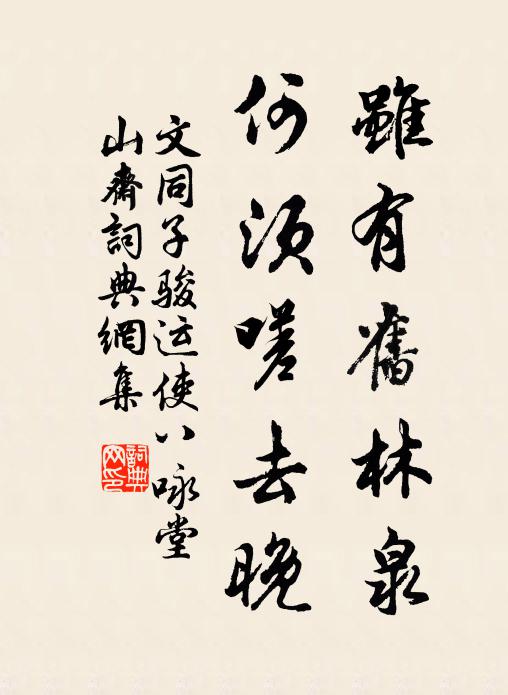 雖有舊林泉
何須嗟去晚
文同子骏运使八咏堂
山齋詞典網集
詞典
网印